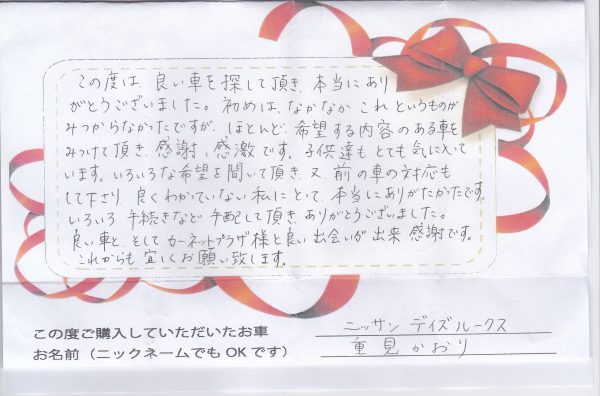 この度は、良い車を探して頂き、本当にあり
がとうございました。初めは、なかなか これ というものが
みつからなかったですが、ほとんど、希望する内容のある車を
みつけて頂き、感謝、感激です。子供達も とても 気に入って
います。いろいろな希望を聞いて頂き、又、前の車の対応も
して下さり 良くわかっていない 私にとって、本当にありがたかたです。
いろいろ 手続きなど 手配して頂き、ありがとうございました。
良い車と、そして カーネットプラザ様と 良い 出会いが 出来 感謝です。
これからも 宜しくお願い致します。
この度ご購入していただいたお車 ニッサン デイズルークス
お名前（ニックネームでもOKです） 重見かおり